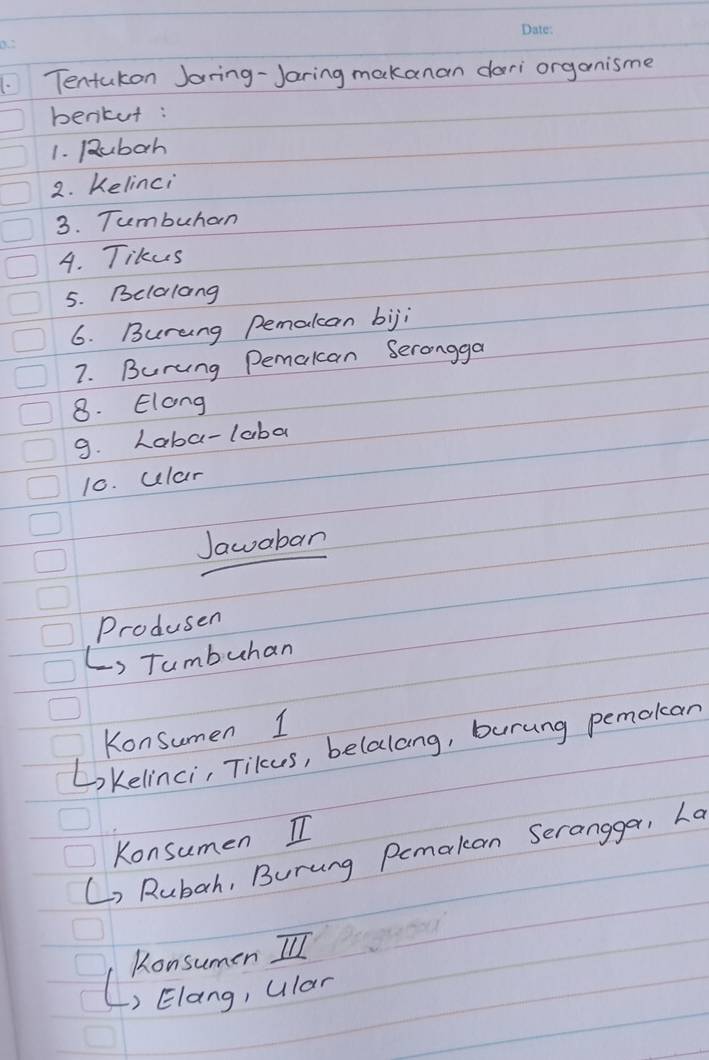 Date:
1. Tentukan Jaring-Jaring makanan dari organisme
berikut :
1. Rubah
2. Kelinci
3. Tumbuhan
4. Tikus
5. Belalang
6. Burung Pemakan biji
7. Burung Pemakan Serangga
8. Elang
9. Laba-laba
10. Ular
Jawaban
Produsen
↳ Tumbuhan
Konsumen I
↳ Kelinci, Tikus, belalang, burung pemakan
Konsumen II
↳ Rubah, Burung Pemakan Serangga, La
Konsumen III
↳ Elang, Ular